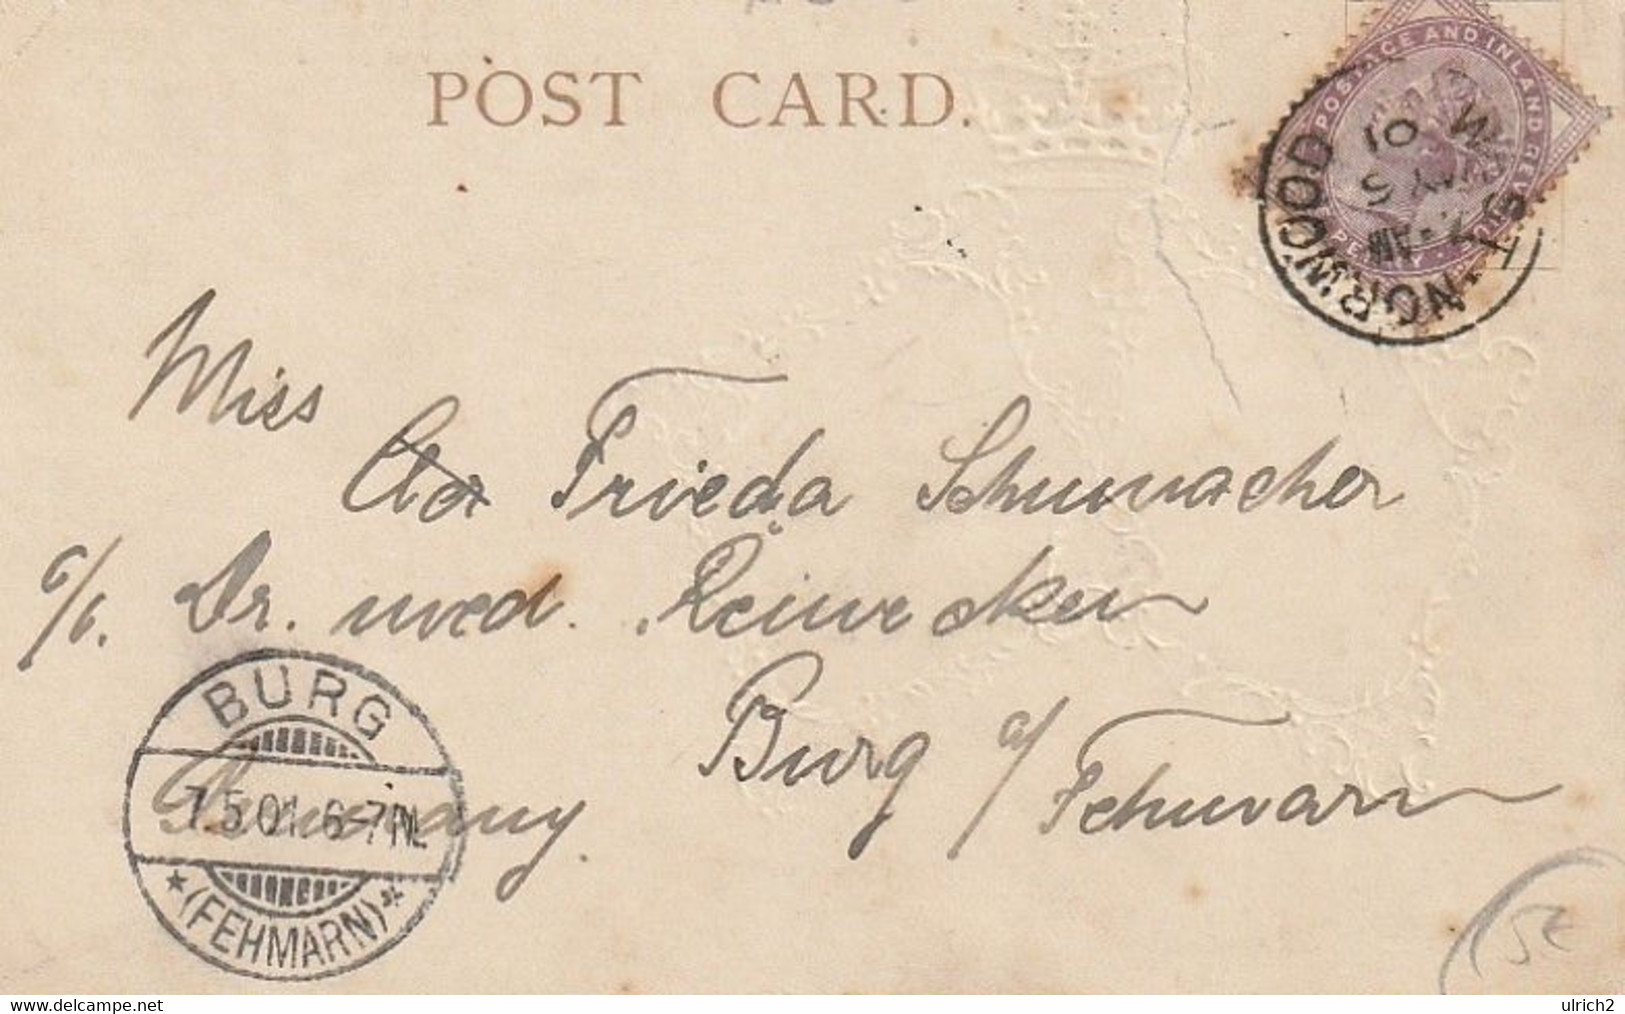 POST CARD.
POSTAGE AND INLAND REVENUE
PENNY
NORWOOD
AM
MY 5
01
Miss
Frieda Schumacher
c/o. Dr. med. Reinecker
Burg a/ Fehmarn
Germany.
BURG
7 5 01. 6-7N.
*(FEHMARN)*
5€
www.delcampe.com
ulrich2